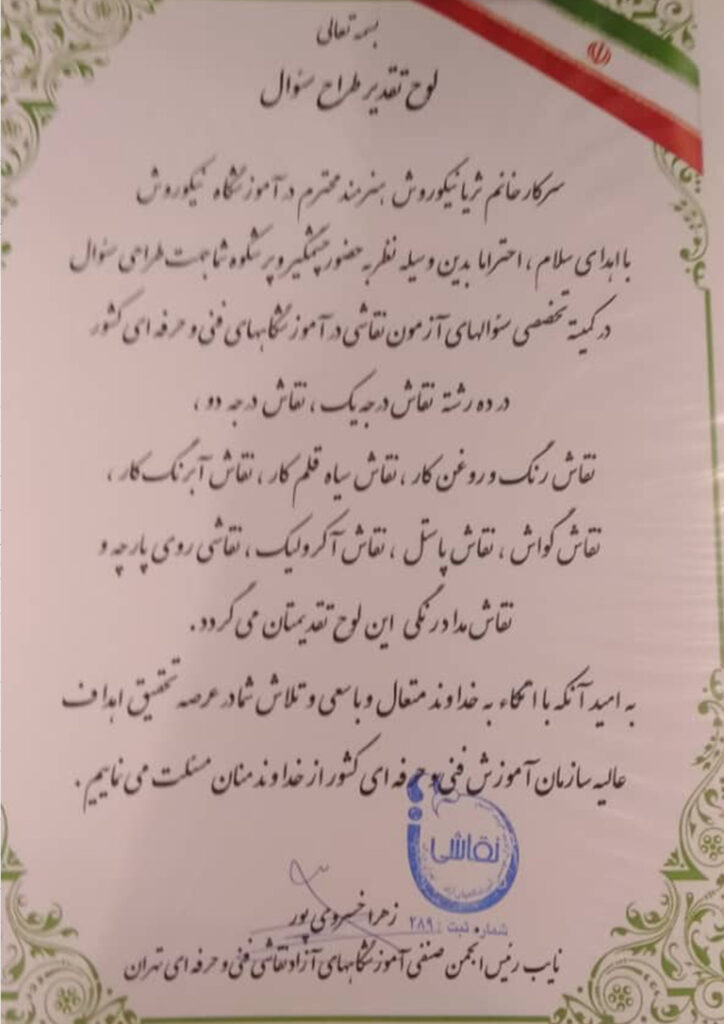 بسمه تعالی
لوح تقدیر طراح سئوال
سرکار خانم ثریا نیکوروش هنرمند محترم در آموزشگاه نیکوروش
با اهدای سلام ، احتراما بدین وسیله نظر به حضور چشمگیر و پر شکوه شما جهت طراحی سئوال
در کمیته تخصصی سئوالهای آزمون نقاشی در آموزشگاههای فنی و حرفه ای کشور
در ده رشته نقاش درجه یک ، نقاش درجه دو ،
نقاش رنگ و روغن کار ، نقاش سیاه قلم کار ، نقاش آبرنگ کار ،
نقاش گواش ، نقاش پاستل ، نقاش آکرولیک ، نقاشی روی پارچه و
نقاش مداد رنگی این لوح تقدیمتان می گردد .
به امید آنکه با اتکاء به خداوند متعال و با سعی و تلاش شما در عرصه تحقیق اهداف
عالیه سازمان آموزش فنی و حرفه ای کشور از خداوند منان مسئلت می نماییم .
نقاشی
شماره ثبت : ۲۸۹
زهرا خسروی پور
نایب رئیس انجمن صنفی آموزشگاههای آزاد نقاشی فنی و حرفه ای تهران